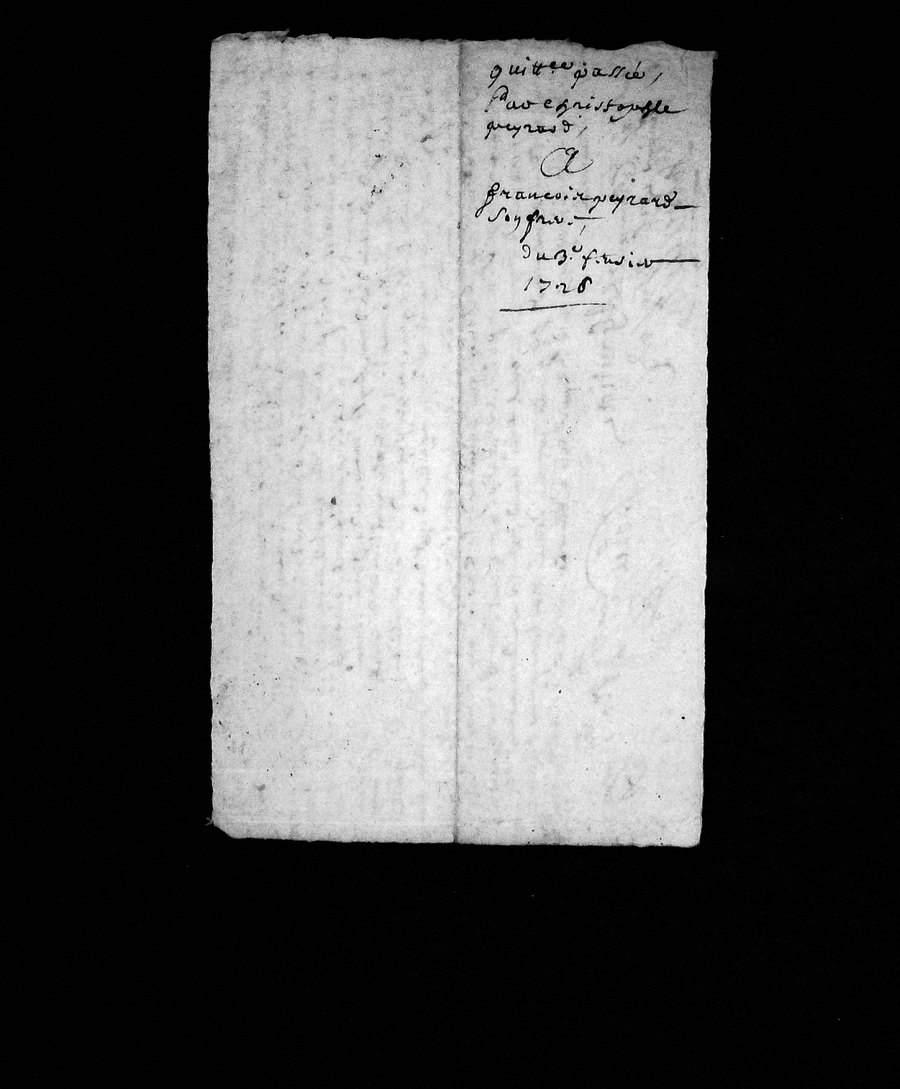 quitt.ce passée,
Par christophle
peyrard,
A
francois peyrard
son frere,
du 3.e fevrier
1726